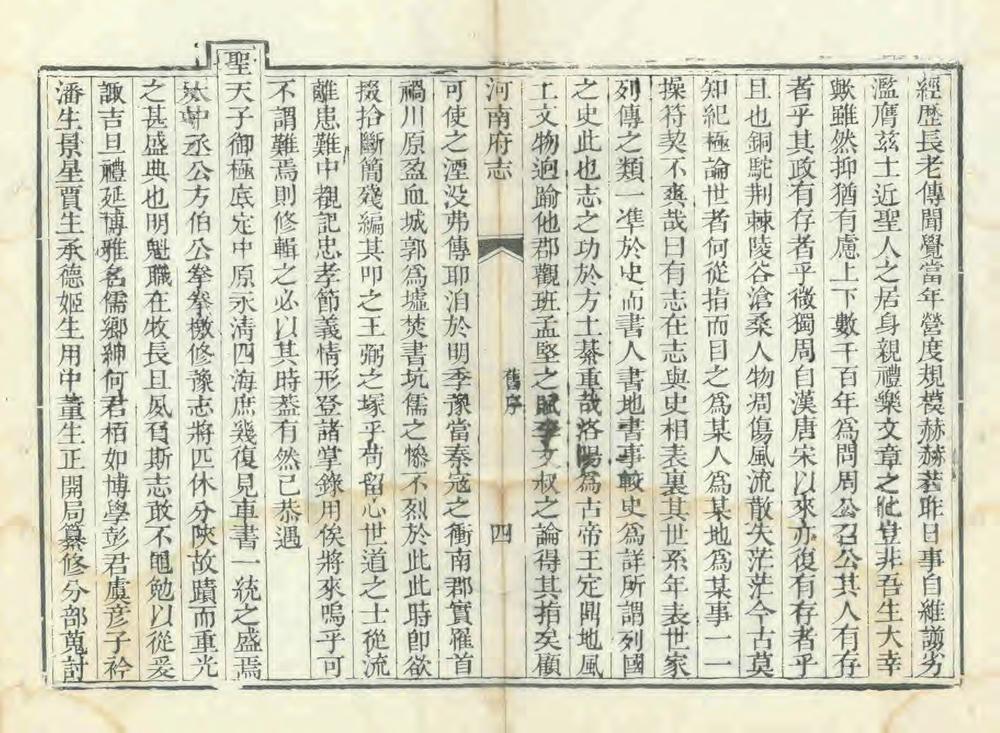 經歷長老傳聞覺當年營度規模赫赫若昨日事自維謭劣
濫膺茲土近聖人之居身親禮樂文章之化豈非吾生大幸
歟雖然抑猶有慮上下數千百年為問周公召公其人有存
者乎其政有存者乎微獨周自漢唐宋以來亦復有存者乎
且也銅駝荆棘陵谷滄桑人物凋傷風流散失茫茫今古莫
知紀極論世者何從指而目之為某人為某地為某事一一
操符契不爽哉曰有志在志與史相表裏其世系年表世家
列傳之類一準於史而書人書地書事較史為詳所謂列國
之史此也志之功於方土綦重哉洛陽為古帝王定鼎地風
土文物逈踰他郡觀班孟堅之賦李文叔之論得其指矣顧
河南府志
舊序
四
可使之湮没弗傳耶洎於明季豫當秦寇之衝南郡實罹首
禍川原盈血城郭為墟焚書坑儒之慘不烈於此此時卽欲
掇拾斷簡殘編其叩之王弼之塚乎茍留心世道之士從流
離患難中覩記忠孝節義情形登諸掌錄用俟將來嗚乎可
不謂難焉則修輯之必以其時葢有然已恭遇
聖天子御極底定中原永清四海庶幾復見車書一統之盛焉
中丞公方伯公拳拳檄修豫志將匹休分陝故蹟而重光
之甚盛典也明魁職在牧長且夙負斯志敢不黽勉以從爰
諏吉旦禮延博雅名儒鄉紳何君栢如博學彭君虞彦子衿
潘生景星賈生承德姬生用中董生正開局纂修分部蒐討